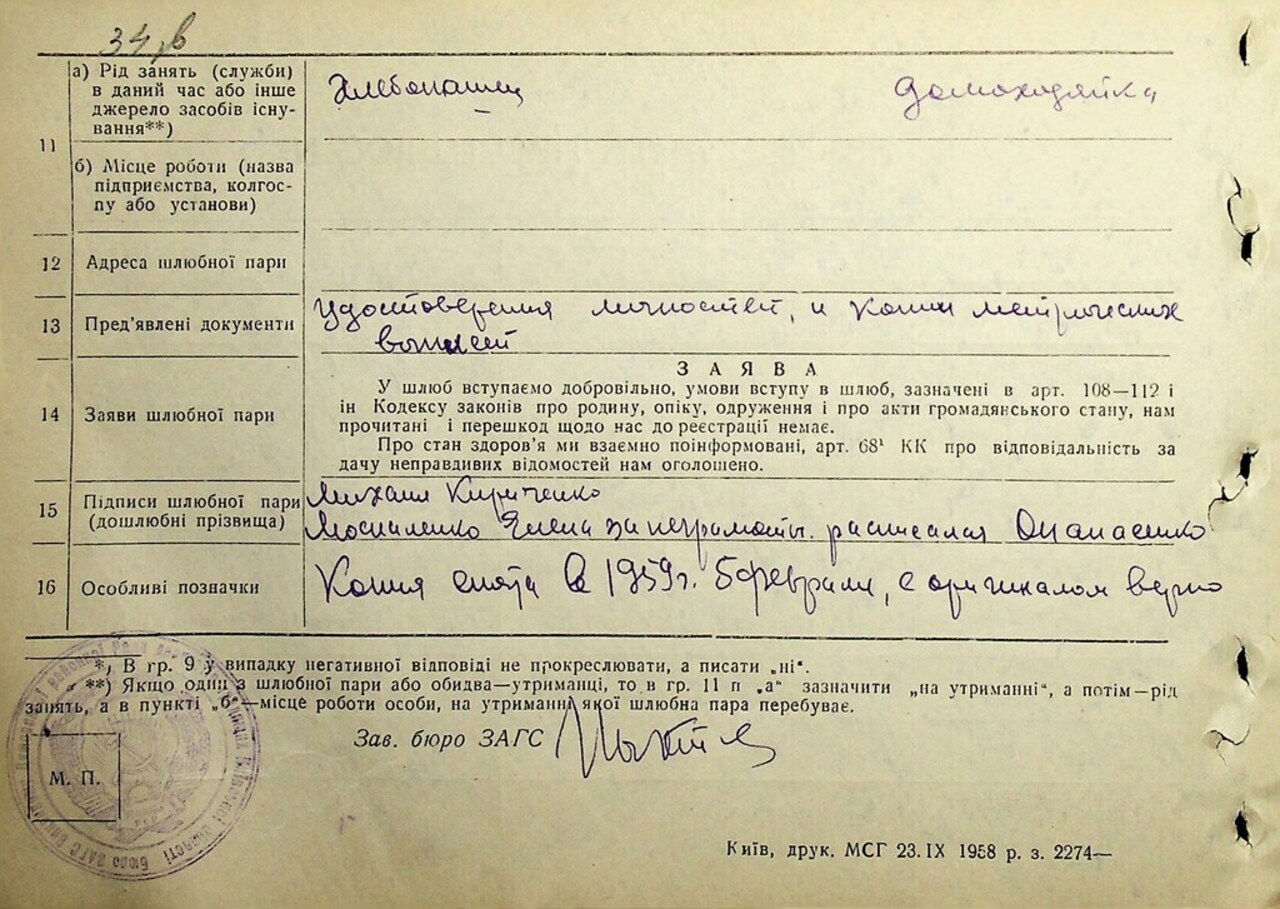 34 в
11
а) Рід занять (служби)
в даний час або інше
джерело засобів існу-
вання**)
Хлебопашец
домохозяйка
б) Місце роботи (назва
підприємства, колгос-
пу або установи)
12
Адреса шлюбної пари
13
Пред’явлені документи
Удостоверения личностей, и копии метрических
выписей
14
Заяви шлюбної пари
ЗАЯВА
У шлюб вступаємо добровільно, умови вступу в шлюб, зазначені в арт. 108—112 і
ін Кодексу законів про родину, опіку, одруження і про акти громадянського стану, нам
прочитані і перешкод щодо нас до реєстрації немає.
Про стан здоров’я ми взаємно поінформовані, арт. 68¹ КК про відповідальність за
дачу неправдивих відомостей нам оголошено.
15
Підписи шлюбної пари
(дошлюбні прізвища)
Михаил Кириченко
Москаленко Елена за неграмотн. расписался Опанасенко
16
Особливі позначки
Копия снята в 1959 г. 5 февраля, с оригиналом верно
*) В гр. 9 у випадку негативної відповіді не прокреслювати, а писати „ні“.
**) Якщо один з шлюбної пари або обидва—утриманці, то в гр. 11 п „а“ зазначити „на утриманні“, а потім—рід
занять, а в пункті „б“—місце роботи особи, на утриманні якої шлюбна пара перебуває.
Зав. бюро ЗАГС
М. П.
бюро ЗАГС
Київ, друк. МСГ 23.IX 1958 р. з. 2274—